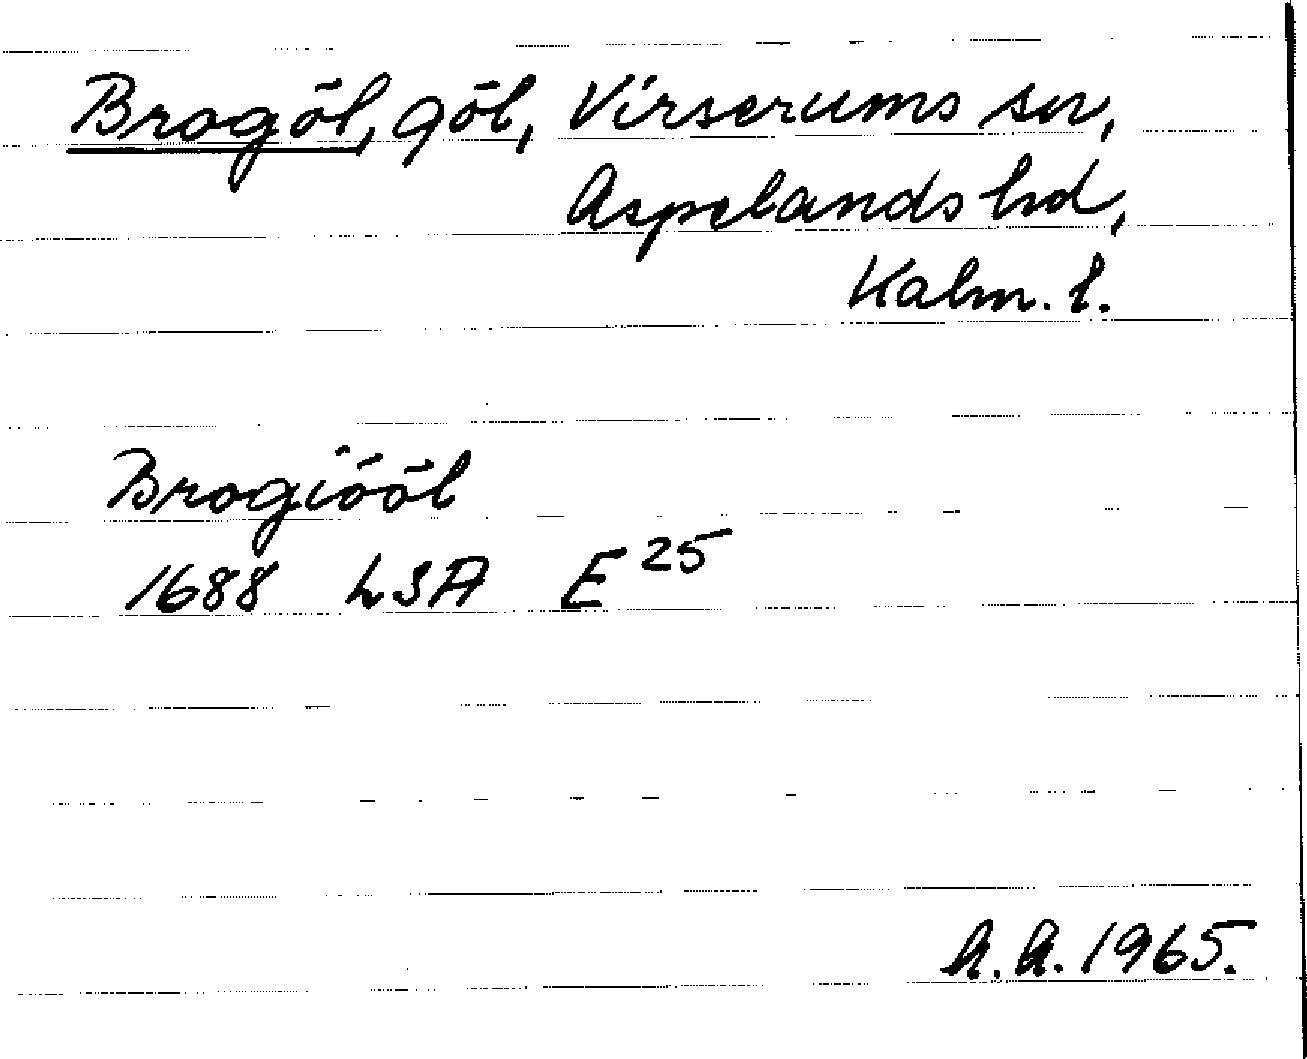 Brogöl, göl, Virserums sn,
Aspelands hd,
Kalm. l.
Brogiööl
1688 LSA E 25
A.A. 1965.